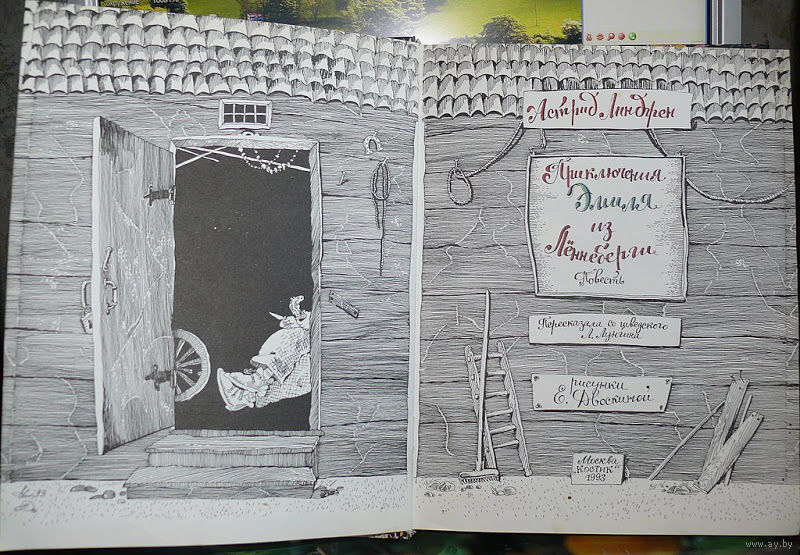 Астрид Линдгрен
Приключения
Эмиля
из
Лённеберги
Повесть
Пересказала со шведского
Л. Лунгина
рисунки
Е. Двоскиной
Москва
„Костик“
1993
www.ay.by